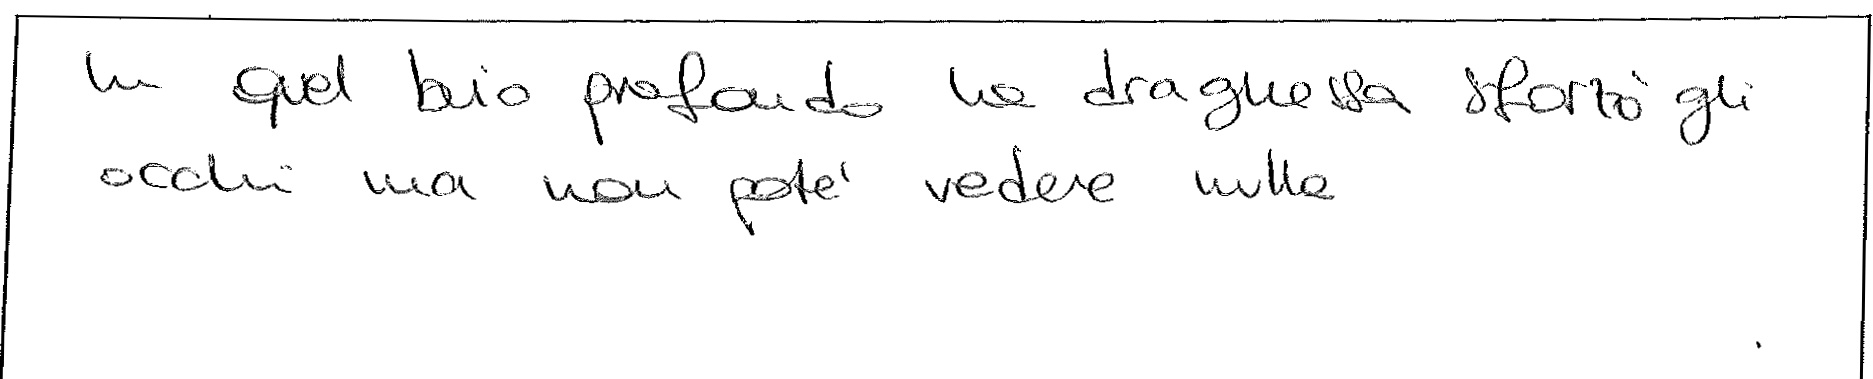 In quel buio profondo la draghessa sforzò gli
occhi ma non poté vedere nulla